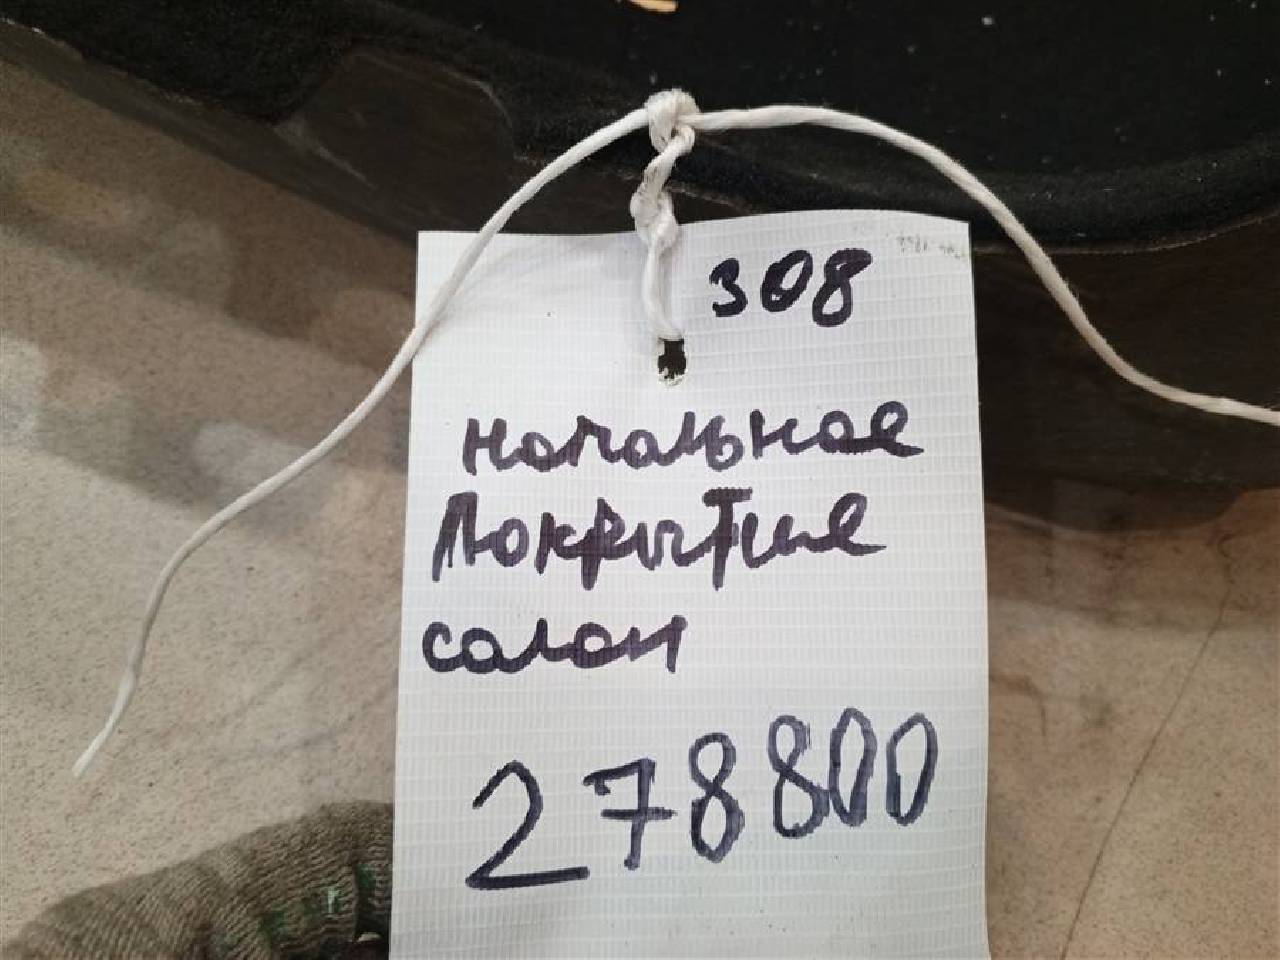 308
Напольное
Покрытие
салон
278800